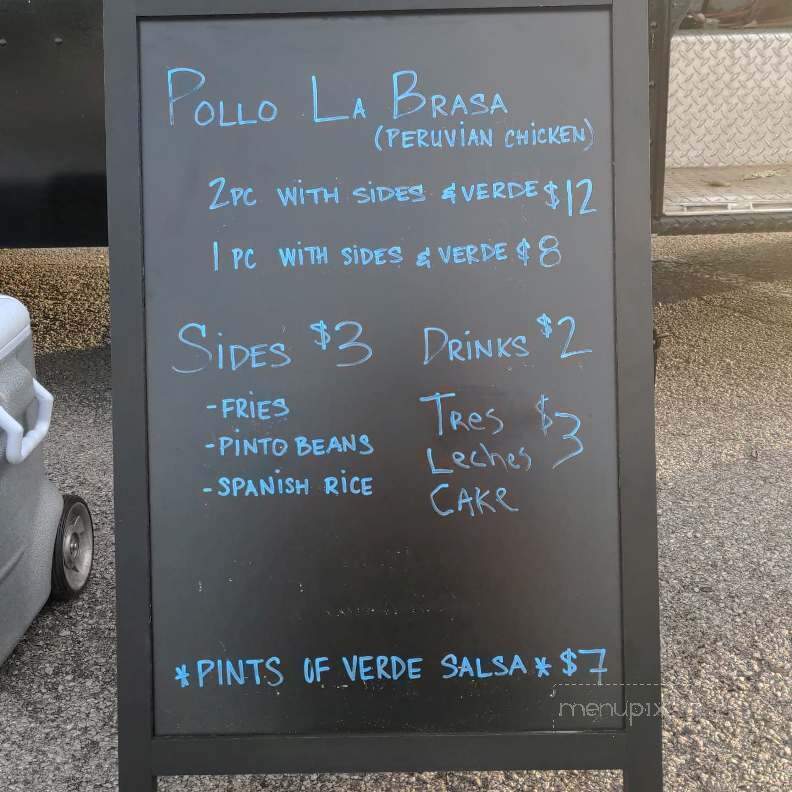 POLLO LA BRASA
(PERUVIAN CHICKEN)
2PC WITH SIDES & VERDE $12
1 PC WITH SIDES & VERDE $8
SIDES $3
-FRIES
-PINTO BEANS
-SPANISH RICE
DRINKS $2
Tres $3
Leches
CAKe
*PINTS OF VERDE SALSA* $7
menupix